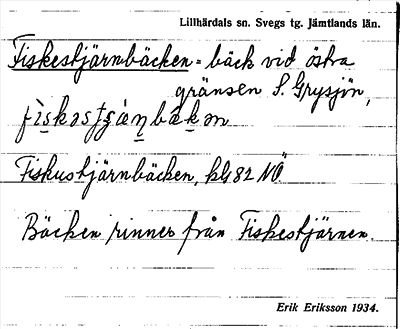 Lillhärdals sn. Svegs tg. Jämtlands län.
Fiskestjärnbäcken = bäck vid östra
gränsen S. Grysjön,
Fiskustjärnbäcken, kbl 82 NÖ
Bäcken rinner från Fiskestjärnen.
Erik Eriksson 1934.